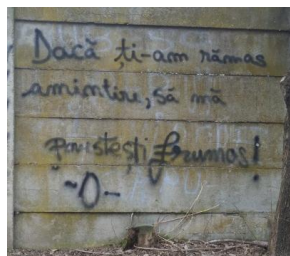 Dacă ți-am rămas
amintire, să mă
povestești frumos!
~O~